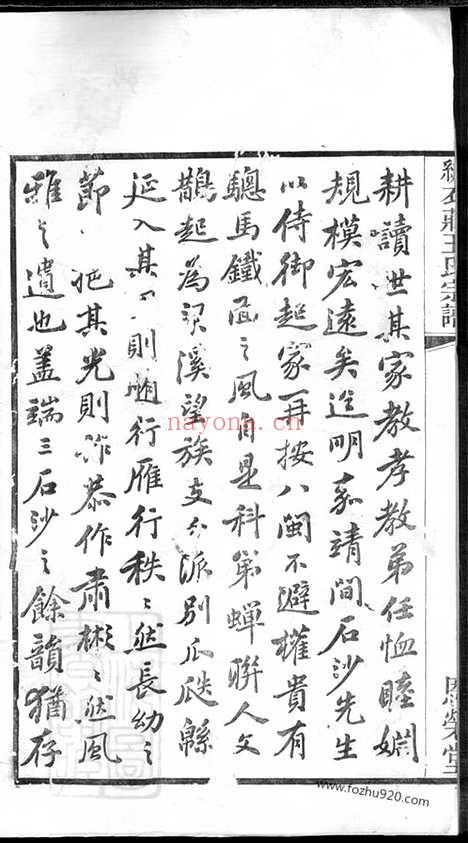 耕讀世其家教孝教弟任恤睦婣
規模宏遠矣迨明嘉靖間石沙先生
以侍御起家再按八閩不避權貴有
驄馬鐵面之風自是科第蟬聯人文
鵲起為梁溪望族支分派別瓜瓞緜
延入其門則魎行雁行秩〻然長幼之
節挹其光則祚恭作肅彬〻然風
雅之遺也蓋端三石沙之餘韻猶存
王氏宗譜
nayona.cn
www.fozhu920.com